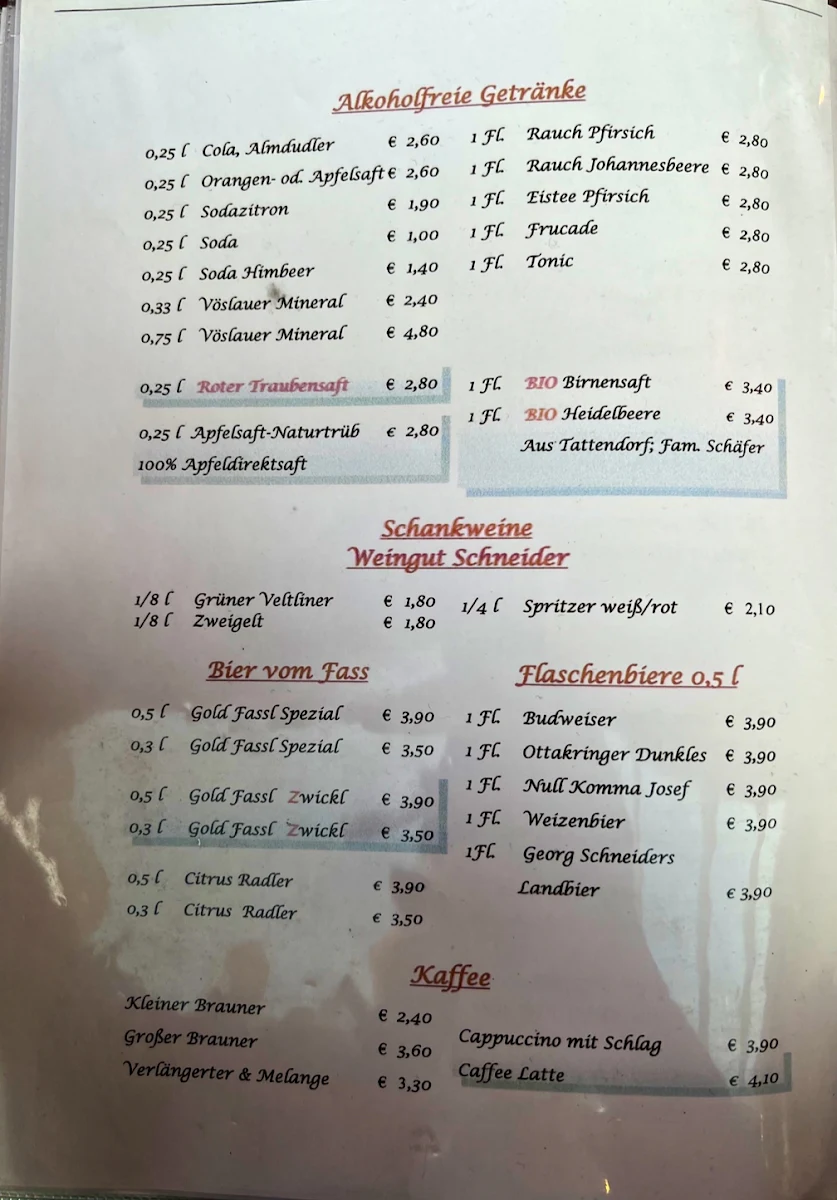 Alkoholfreie Getränke
0,25 l Cola, Almdudler € 2,60
0,25 l Orangen- od. Apfelsaft € 2,60
0,25 l Sodazitron € 1,90
0,25 l Soda € 1,00
0,25 l Soda Himbeer € 1,40
0,33 l Vöslauer Mineral € 2,40
0,75 l Vöslauer Mineral € 4,80
1 Fl. Rauch Pfirsich € 2,80
1 Fl. Rauch Johannesbeere € 2,80
1 Fl. Eistee Pfirsich € 2,80
1 Fl. Frucade € 2,80
1 Fl. Tonic € 2,80
0,25 l Roter Traubensaft € 2,80
0,25 l Apfelsaft-Naturtrüb € 2,80
100% Apfeldirektsaft
1 Fl. BIO Birnensaft € 3,40
1 Fl. BIO Heidelbeere € 3,40
Aus Tattendorf; Fam. Schäfer
Schankweine
Weingut Schneider
1/8 l Grüner Veltliner € 1,80
1/8 l Zweigelt € 1,80
1/4 l Spritzer weiß/rot € 2,10
Bier vom Fass
0,5 l Gold Fassl Spezial € 3,90
0,3 l Gold Fassl Spezial € 3,50
0,5 l Gold Fassl Zwickl € 3,90
0,3 l Gold Fassl Zwickl € 3,50
0,5 l Citrus Radler € 3,90
0,3 l Citrus Radler € 3,50
Flaschenbiere 0,5 l
1 Fl. Budweiser € 3,90
1 Fl. Ottakringer Dunkles € 3,90
1 Fl. Null Komma Josef € 3,90
1 Fl. Weizenbier € 3,90
1Fl. Georg Schneiders
Landbier € 3,90
Kaffee
Kleiner Brauner € 2,40
Großer Brauner € 3,60
Verlängerter & Melange € 3,30
Cappuccino mit Schlag € 3,90
Caffee Latte € 4,10